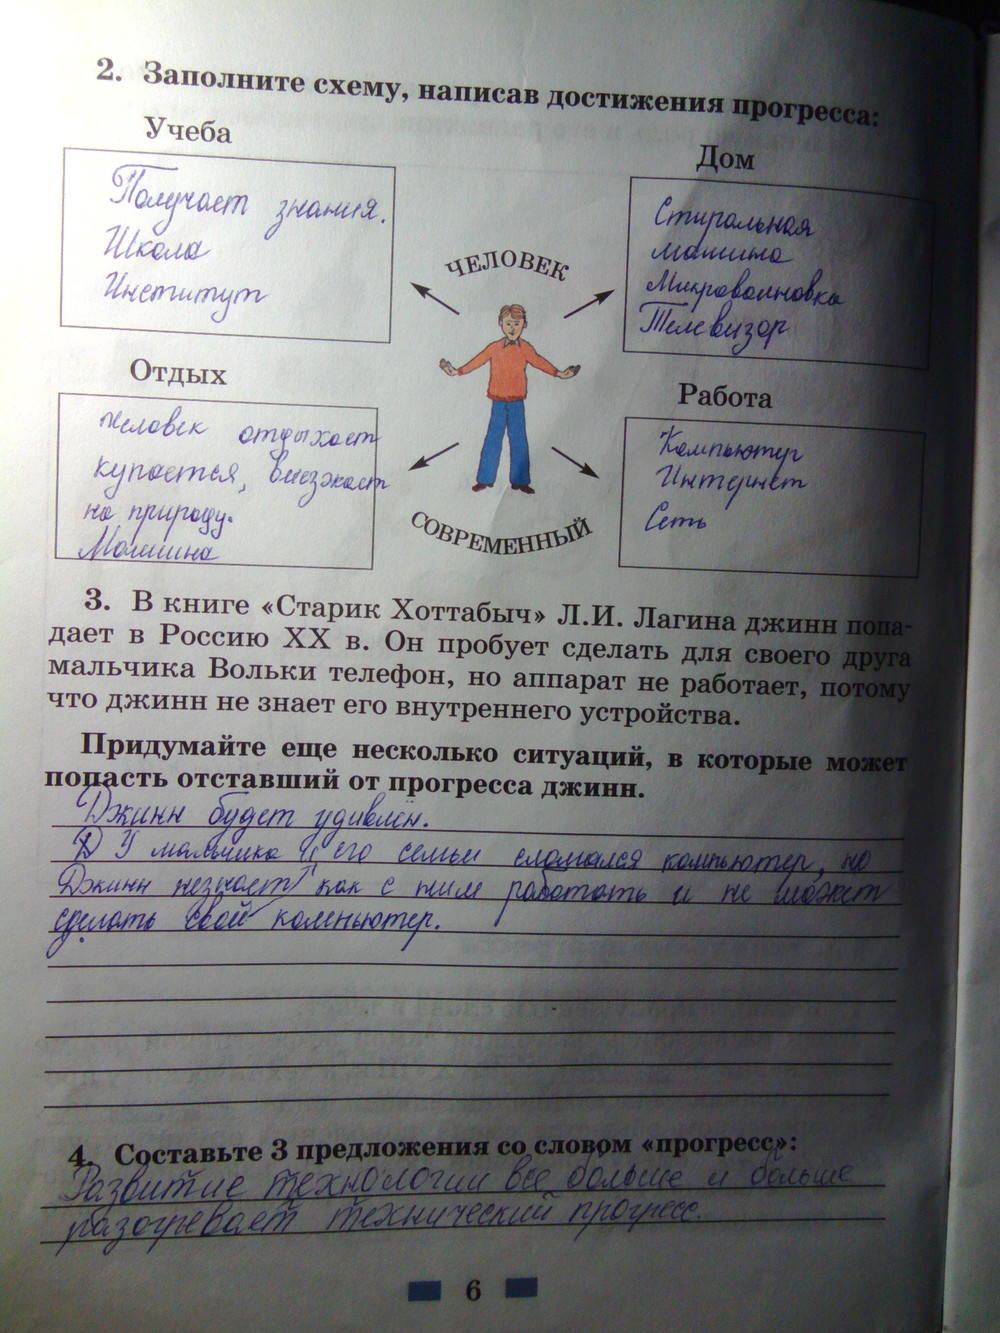 2. Заполните схему, написав достижения прогресса:
Учеба
Получает знания.
Школа
Институт
Дом
Стиральная
машина
Микроволновка
Телевизор
ЧЕЛОВЕК
Отдых
человек отдыхает
купается, выезжает
на природу.
Машина
Работа
Компьютер
Интернет
Сеть
СОВРЕМЕННЫЙ
3. В книге «Старик Хоттабыч» Л.И. Лагина джинн попа-
дает в Россию XX в. Он пробует сделать для своего друга
мальчика Вольки телефон, но аппарат не работает, потому
что джинн не знает его внутреннего устройства.
Придумайте еще несколько ситуаций, в которые может
попасть отставший от прогресса джинн.
Джинн будет удивлён.
У мальчика и его семьи сломался компьютер, но
Джинн незнает как с ним работать и не может
сделать свой компьютер.
4. Составьте 3 предложения со словом «прогресс»:
Развитие технологии все больше и больше
разогревает технический прогресс.
6